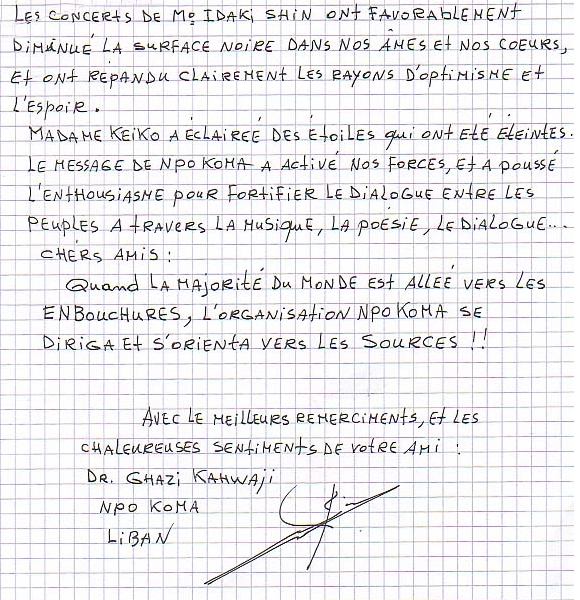 LES CONCERTS DE Mº IDAKI SHIN ONT FAVORABLEMENT
DIMINUÉ LA SURFACE NOIRE DANS NOS ÂMES Et NOS COEURS,
Et ONT RÉPANDU CLAIREMENT LES RAYONS D'OPTIMISME Et
L'ESPOIR.
MADAME KEIKO A ÉCLAIREÉ DES ÉTOILES qui ONT ETÉ ÉTEINTES.
LE MESSAGE DE NPO KOMA A ACTIVÉ NOS FORCES, Et A POUSSÉ
L'ENTHOUSIASME POUR FORTIFIER LE DIALOGUE ENTRE LES
PEUPLES A TRAVERS LA MUSIQUE, LA POÉSIE, LE DIALOGUE...
CHÈRS AMIS :
Quand LA MAJORITÉ DU MONDE EST ALLEÉ VERS LES
ENBOUCHURES, L'ORGANISATION NPO KOMA SE
DIRIGA Et S'ORIENTA VERS LES SOURCES !!
AVEC LE MEILLEURS REMERCIMENTS, Et LES
CHALEUREUSES SENTIMENTS DE VOTRE AMI :
DR. GHAZI KAHWAJI
NPO KOMA
LIBAN